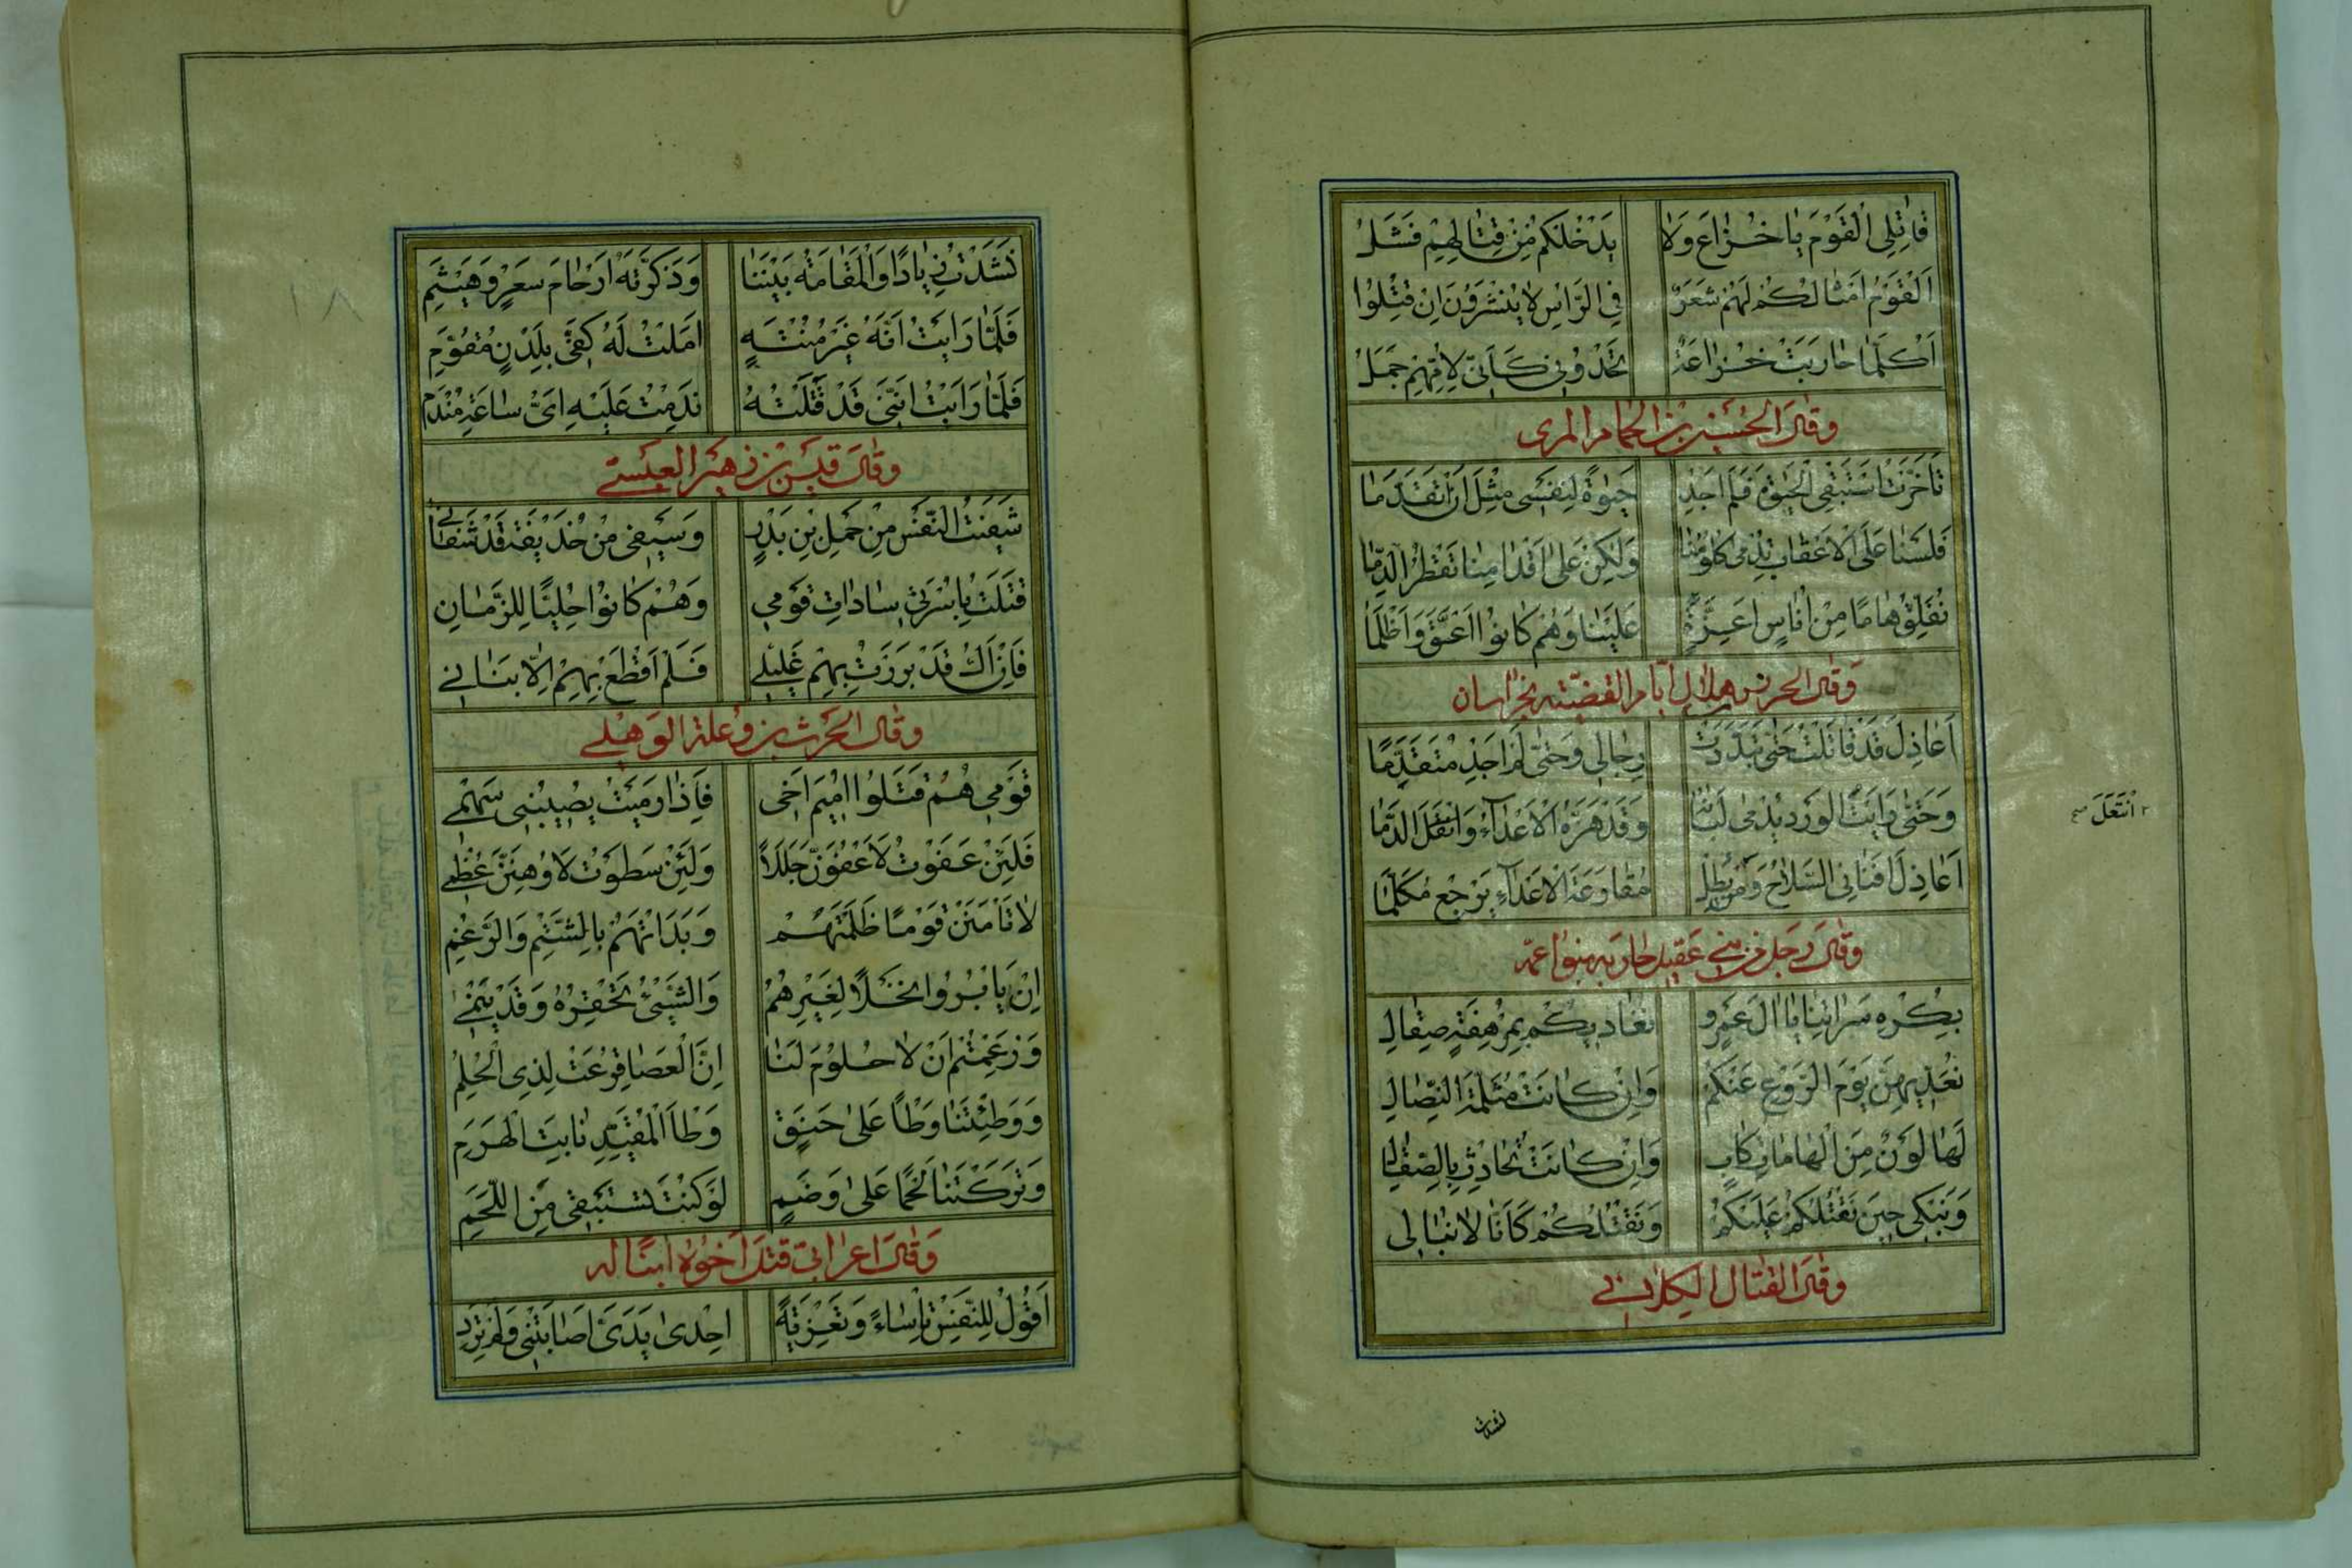 قَاتِلِي الْقَوْمَ يَا خُزَاعَ وَلَا يَدْخُلَكُمْ مِنْ قِتَالِهِمْ فَشَلُ
اَلْقَوْمُ اَمْثَالُكُمْ لَهُمْ شَعَرٌ فِي الرَّاسِ لَا يُنْشَرُونَ اِنْ قُتِلُوا
اَكُلَّمَا حَارَبَتْ خُزَاعَةُ تَحْدُونِي كَاَنِّي لِاُمِّهِمْ جَمَلُ
وقال الحُسَين بن الحمام المرى
تَاَخَّرْتُ اَسْتَبْقِي الْحَيٰوةَ فَلَمْ اَجِدْ حَيٰوةً لِنَفْسِي مِثْلَ اَنْ اَتَقَدَّمَا
فَلَسْنَا عَلَى الْاَعْقَابِ تَدْمٰى كُلُومُنَا وَلٰكِنْ عَلٰى اَقْدَامِنَا تَقْطُرُ الدِّمَا
نُفَلِّقُ هَامًا مِنْ اُنَاسٍ اَعِزَّةٍ عَلَيْنَا وَهُمْ كَانُوا اَعَقَّ وَاَظْلَمَا
وَقال الحرن هلال ايّام القضيّته بخراسان
اَعَاذِلَ قَدْ قَاتَلْتُ حَتّٰى تَبَدَّدَتْ رِجَالِي وَحَتّٰى لَمْ اَجِدْ مُتَقَدِّمًا
وَحَتّٰى رَاَيْتُ الوَرْدَ يَدْمٰى لَبَانُهُ وَقَدْ هَزَّهُ الْاَعْدَآءُ وَانْتَقَلَ الدِّمَا
٢ اَنْتَعَلَ صح
اَعَاذِلَ اَفْنَانِي السِّلَاحُ وَمَنْ يُطِلْ مُقَارَعَةَ الْاَعْدَآءِ يَرْجِعْ مُكَلَّمًا
وقال رَجل من بنى عَقيل حاربه بنوا عمّه
بِكُرْهِ سَرَاتِنَا يَا اٰلَ عَمْرٍو نُغَادِيكُمْ بِمُرْهَفَةٍ صِقَالِ
نُعَدِّيهِنَّ يَوْمَ الرَّوْعِ عَنْكُمْ وَاِنْ كَانَتْ مُثَلَّمَةَ النِّصَالِ
لَهَا لَوْنٌ مِنَ الْهَامَاتِ كَابٍ وَاِنْ كَانَتْ تُحَادَثُ بِالصِّقَالِ
وَنَبْكِي حِينَ نَقْتُلُكُمْ عَلَيْكُمْ وَنَقْتُلُكُمْ كَاَنَّا لَا نُبَالِى
وقال القتال الكلابي
نشدت
نَشَدْتُ زِيَادًا وَالْمَقَامَةُ بَيْنَنَا وَذَكَّرْتُهُ اَرْحَامَ سَعْرٍ وَهَيْثَمِ
فَلَمَّا رَاَيْتُ اَنَّهُ غَيْرُ مُنْتَهٍ اَمَلْتُ لَهُ كَفّٰي بِلَدْنٍ مُقَوَّمِ
فَلَمَّا رَاَيْتُ اَنَّنِي قَدْ قَتَلْتُهُ نَدِمْتُ عَلَيْهِ اَيَّ سَاعَةِ مَنْدَمِ
وقال قيس بن زهير العبسي
شَفَيْتُ النَّفْسَ مِنْ حَمَلِ بْنِ بَدْرٍ وَسَيْفِي مِنْ حُذَيْفَةَ قَدْ شَفَانِي
قَتَلْتُ بِاِسْرَتِي سَادَاتِ قَوْمِي وَهُمْ كَانُوا حِلِيًّا لِلزَّمَانِ
فَاِنْ اَكُ قَدْ بَرَزَتْ بِهِمْ غَلِيلِي فَلَمْ اَقْطَعْ بِهِمْ اِلَّا بَنَانِي
وقال الحرث بن وعلة الوهلي
قَوْمِي هُمُ قَتَلُوا اُمَيْمَ اَخِي فَاِذَا رَمَيْتُ يُصِيبُنِي سَهْمِي
فَلَئِنْ عَفَوْتُ لَاَعْفُوَنْ جَلَلًا وَلَئِنْ سَطَوْتُ لَاُوهِنَنْ عَظْمِي
لَا تَاْمَنَنْ قَوْمًا ظَلَمْتَهُمْ وَبَدَاْتَهُمْ بِالشَّتْمِ وَالرَّغْمِ
اِنْ يَابُرُوا نَخْلًا لِغَيْرِهُمُ وَالشَّيْءُ تَحْقِرُهُ وَقَدْ يَنْمِي
وَزَعَمْتُمُ اَنْ لَا حُلُومَ لَنَا اِنَّ الْعَصَا قُرِعَتْ لِذِي الْحِلْمِ
وَوَطِئْتَنَا وَطْاً عَلٰى حَنَقٍ وَطْاَ الْمُقَيَّدِ نَابِتَ الْهَرَمِ
وَتَرَكْتَنَا لَحْمًا عَلٰى وَضَمٍ لَوْ كُنْتَ تَسْتَبْقِي مِنَ اللَّحْمِ
وَقَال اعرابي قتل اَخُوهُ ابنًا له
اَقُولُ لِلنَّفْسِ تَاسَاءً وَتَعْزِيَةً اِحْدٰى يَدَيَّ اَصَابَتْنِي وَلَمْ تُرِدِ